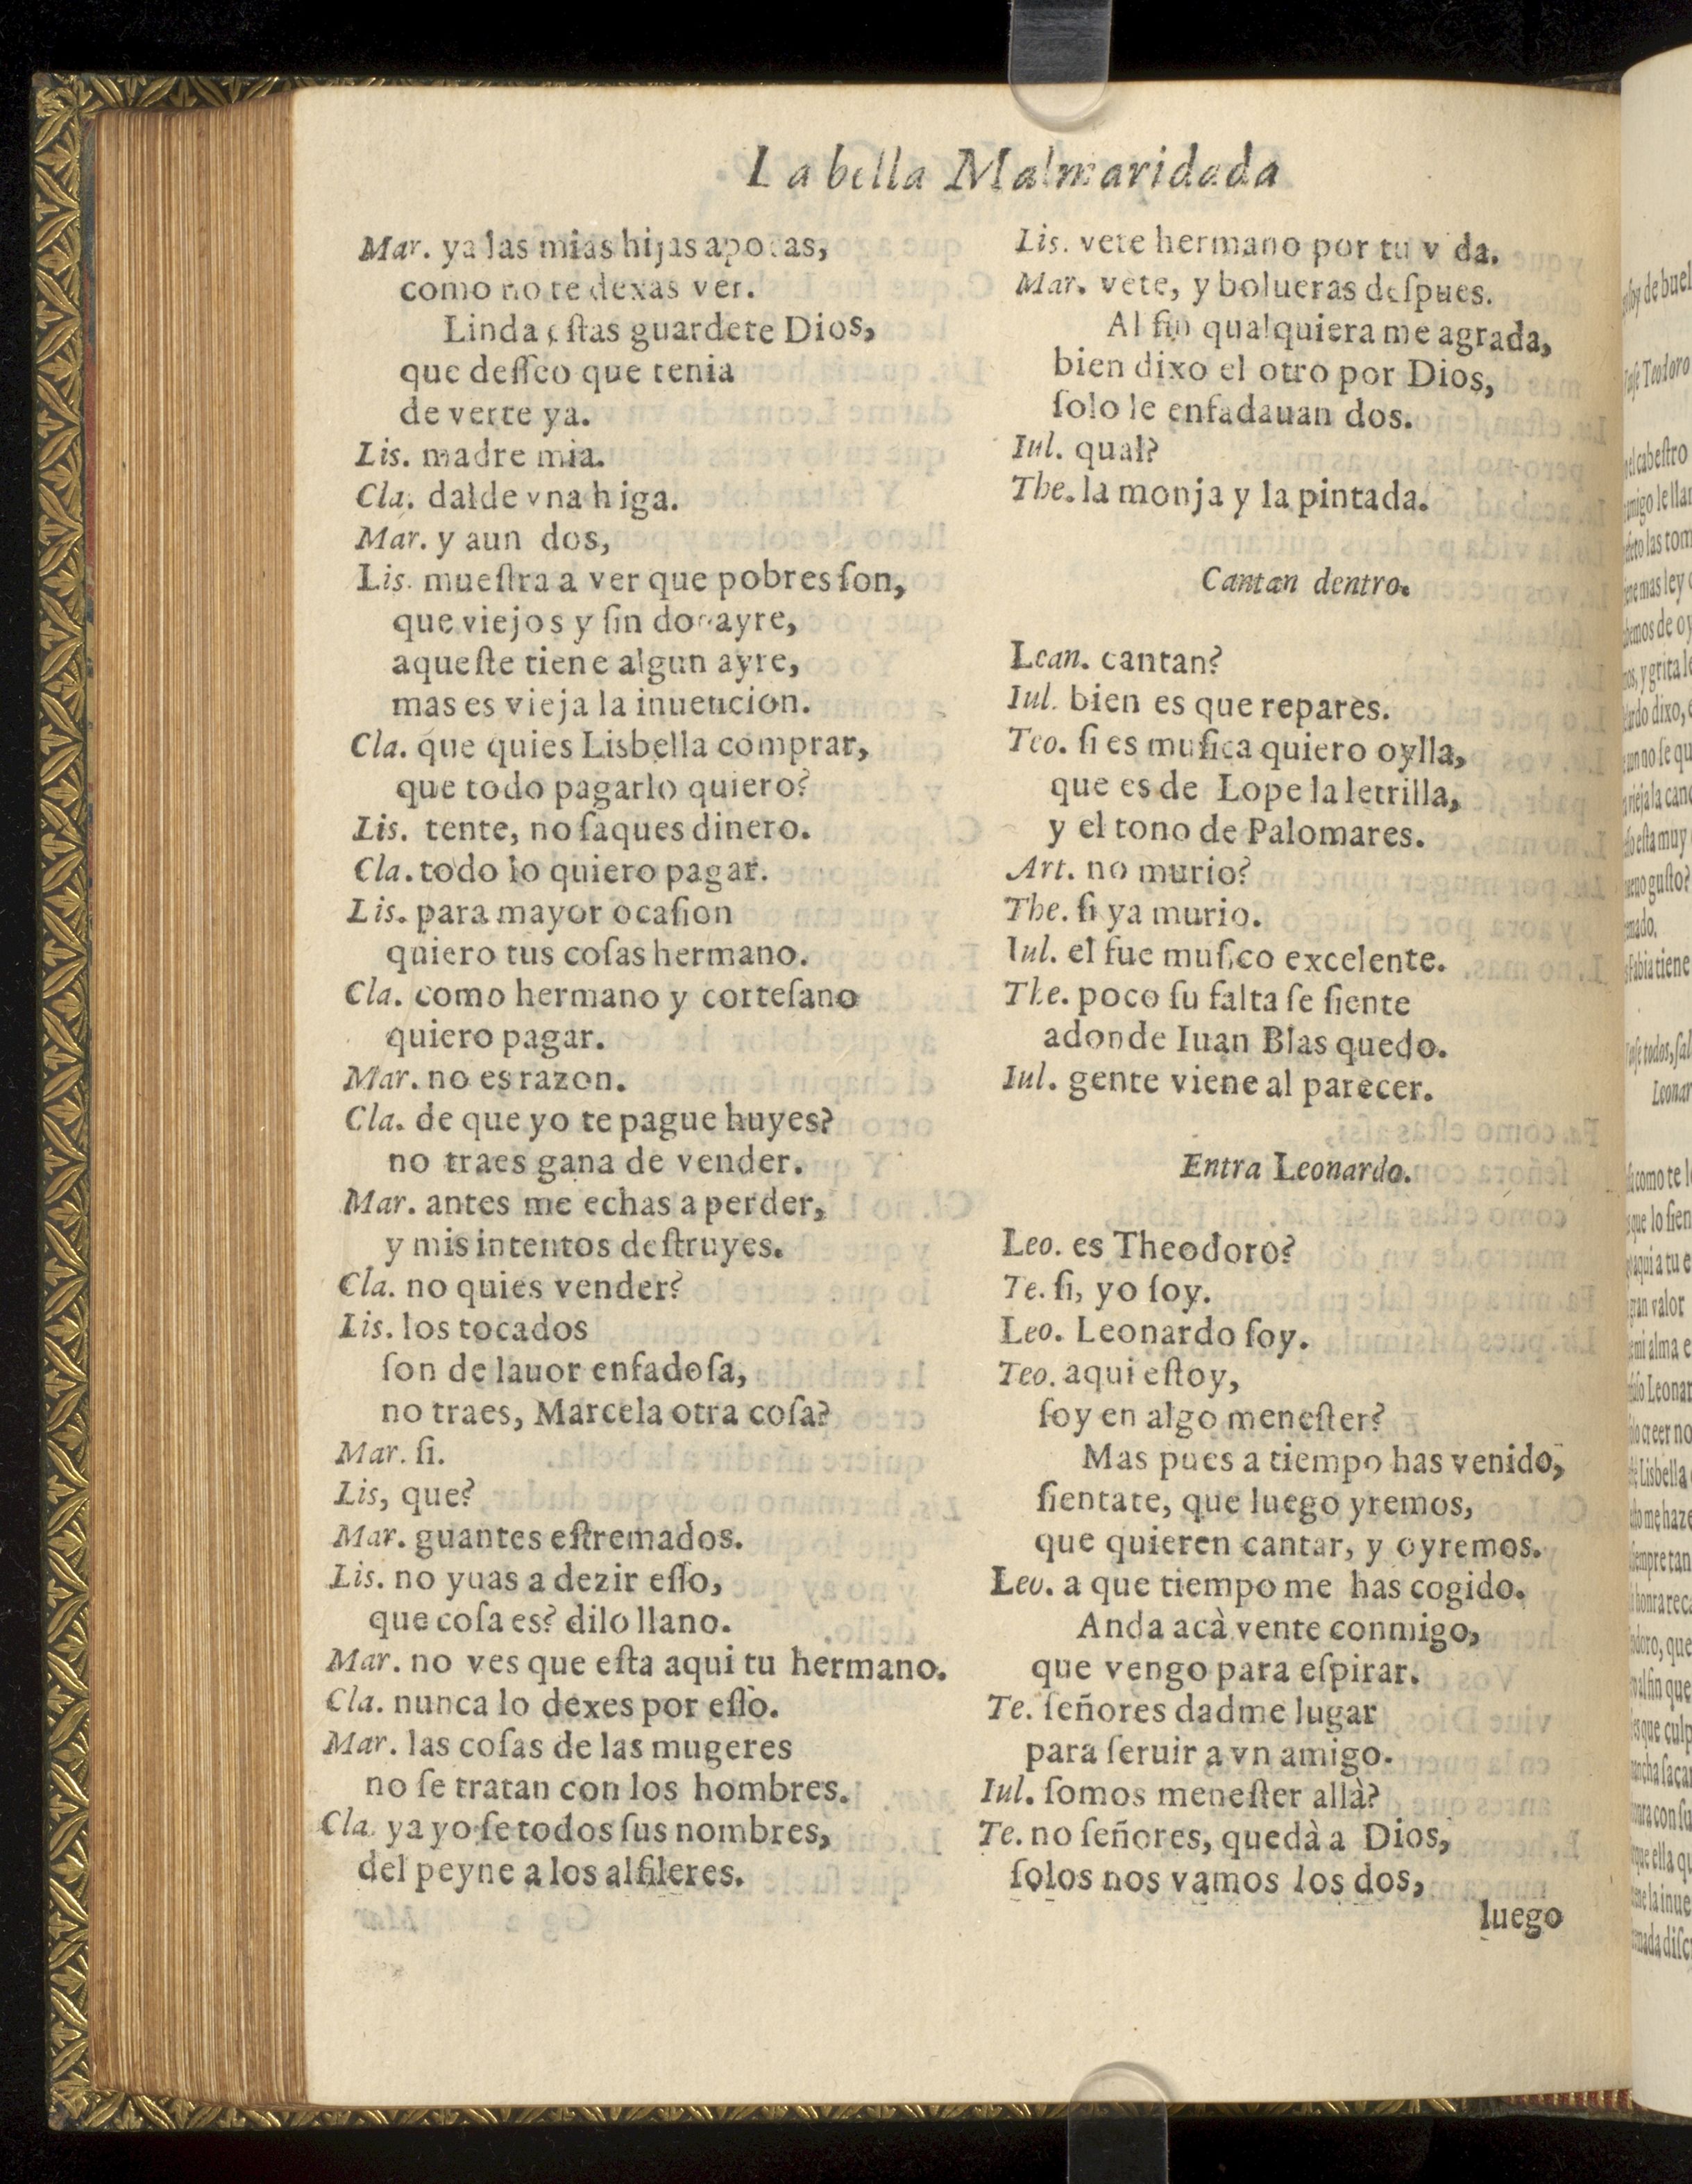 La bella Malmaridada
Mar. ya las mias hijas apocas,
como no te dexas ver.
Linda estas guardete Dios,
que desseo que tenia
de verte ya.
Lis. madre mia.
Cla. dalde vna higa.
Mar. y aun dos,
Lis. muestra a ver que pobres son,
que viejos y sin donayre,
aqueste tiene algun ayre,
mas es vieja la inuencion.
Cla. que quies Lisbella comprar,
que todo pagarlo quiero?
Lis. tente, no saques dinero.
Cla. todo lo quiero pagar.
Lis. para mayor ocasion
quiero tus cosas hermano.
Cla. como hermano y cortesano
quiero pagar.
Mar. no es razon.
Cla. de que yo te pague huyes?
no traes gana de vender.
Mar. antes me echas a perder,
y mis intentos destruyes.
Cla. no quies vender?
Lis. los tocados
son de lauor enfadosa,
no traes, Marcela otra cosa?
Mar. si.
Lis, que?
Mar. guantes estremados.
Lis. no yuas a dezir esso,
que cosa es? dilo llano.
Mar. no ves que esta aqui tu hermano.
Cla. nunca lo dexes por esso.
Mar. las cosas de las mugeres
no se tratan con los hombres.
Cla. ya yo se todos sus nombres,
del peyne a los alfileres.
Lis. vete hermano por tu vida.
Mar. vete, y bolueras despues.
Al fin qualquiera me agrada,
bien dixo el otro por Dios,
solo le enfadauan dos.
Iul. qual?
The. la monja y la pintada.
Cantan dentro.
Lean. cantan?
Iul. bien es que repares.
Teo. si es musica quiero oylla,
que es de Lope la letrilla,
y el tono de Palomares.
Art. no murio?
The. si ya murio.
Iul. el fue musico excelente.
The. poco su falta se siente
adonde Iuan Blas quedo.
Iul. gente viene al parecer.
Entra Leonardo.
Leo. es Theodoro?
Te. si, yo soy.
Leo. Leonardo soy.
Teo. aqui estoy,
soy en algo menester?
Mas pues a tiempo has venido,
sientate, que luego yremos,
que quieren cantar, y oyremos.
Leo. a que tiempo me has cogido.
Anda acà vente conmigo,
que vengo para espirar.
Te. señores dadme lugar
para seruir a vn amigo.
Iul. somos menester allà?
Te. no señores, quedà a Dios,
solos nos vamos los dos,
luego